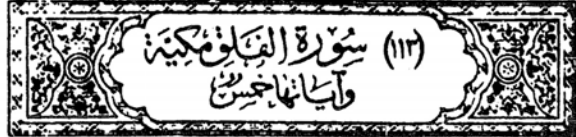 (١١٣) سُورَةُ الْفَلَقِ مَكِيَّة
وَآيَاتُهَا خَمْسٌ